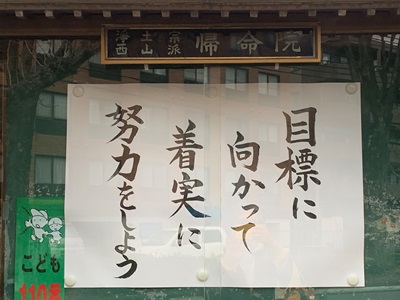 浄土宗
西山派
帰命院
目標に
向かって
着実に
努力をしよう
こども
110番